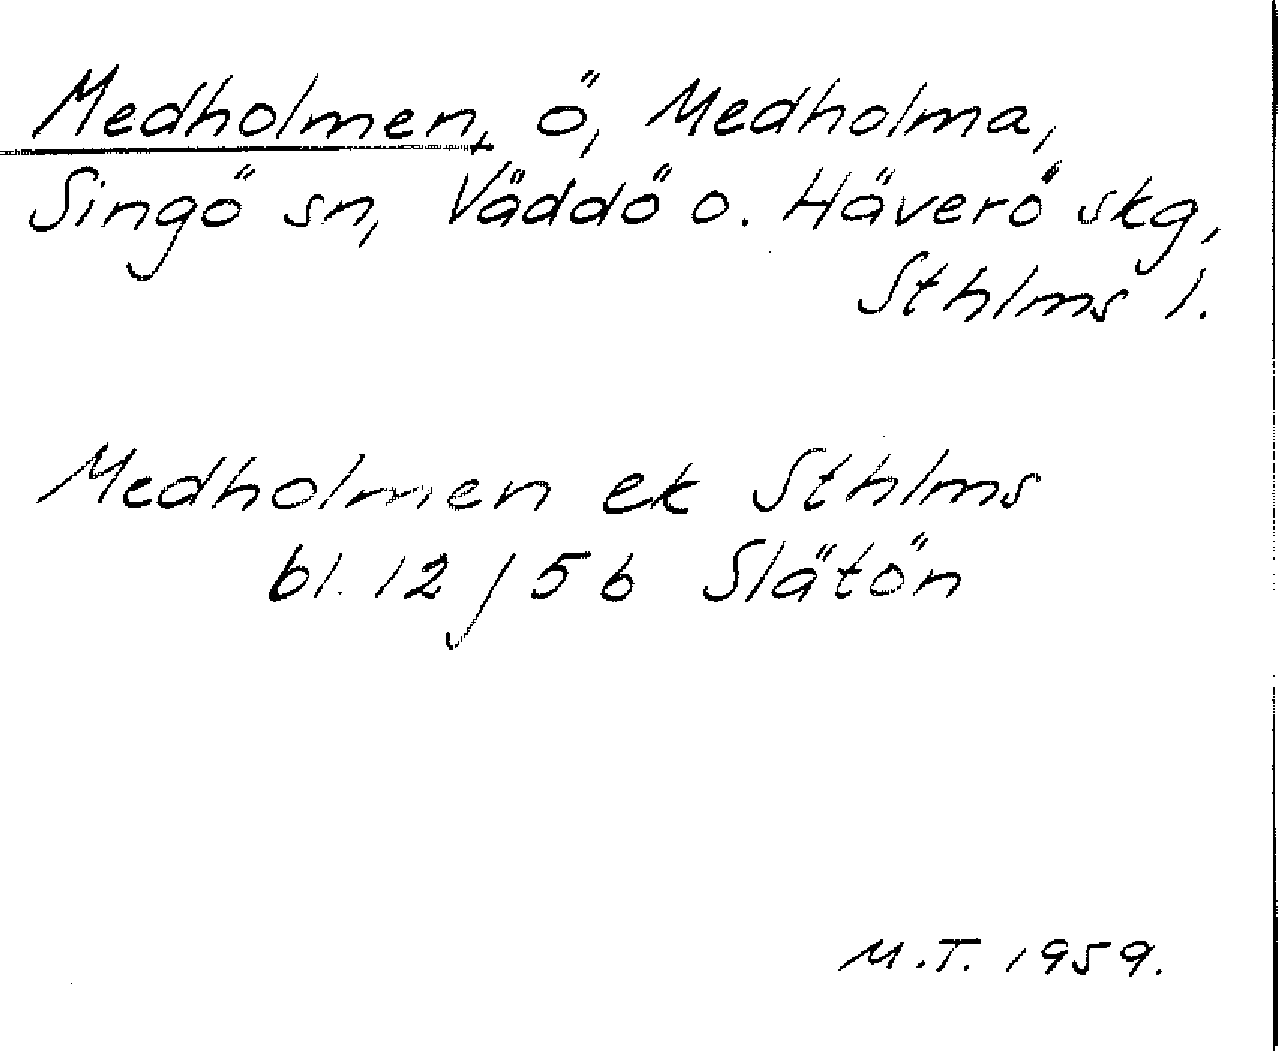 Medholmen, ö, Medholma,
Singö sn, Väddö o. Häverö skg,
Sthlms l.
Medholmen ek Sthlms
bl. 12/5b Slätön
M.T. 1959.